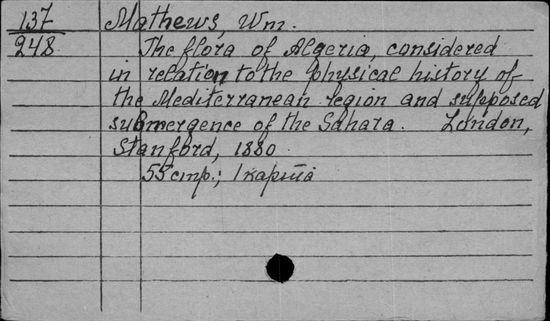 137 Mathews, Wm.
248 The flora of Algeria, considered
in relation to the physical history of
the Mediterranean region and supposed
submergence of the Sahara. London,
Stanford, 1880.
55 стр.; 1 карта